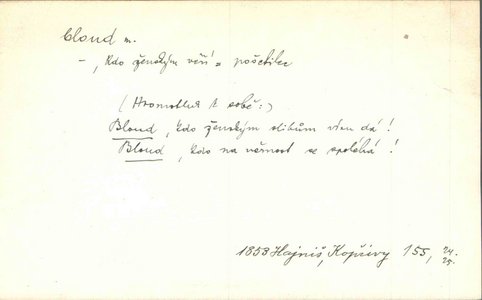 bloud m.
– , kdo ženským věří = pošetilec
(Hromotluk k sobě:)
Bloud, kdo ženským slibům víru dá!
Bloud, kdo na věrnost se spoléhá!
1853 Hajniš, Kopřivy 155, 24.
25.